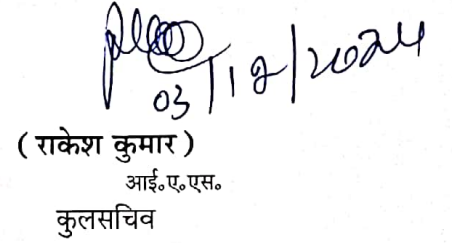 03/12/2024
( राकेश कुमार )
आई॰ए॰एस॰
कुलसचिव